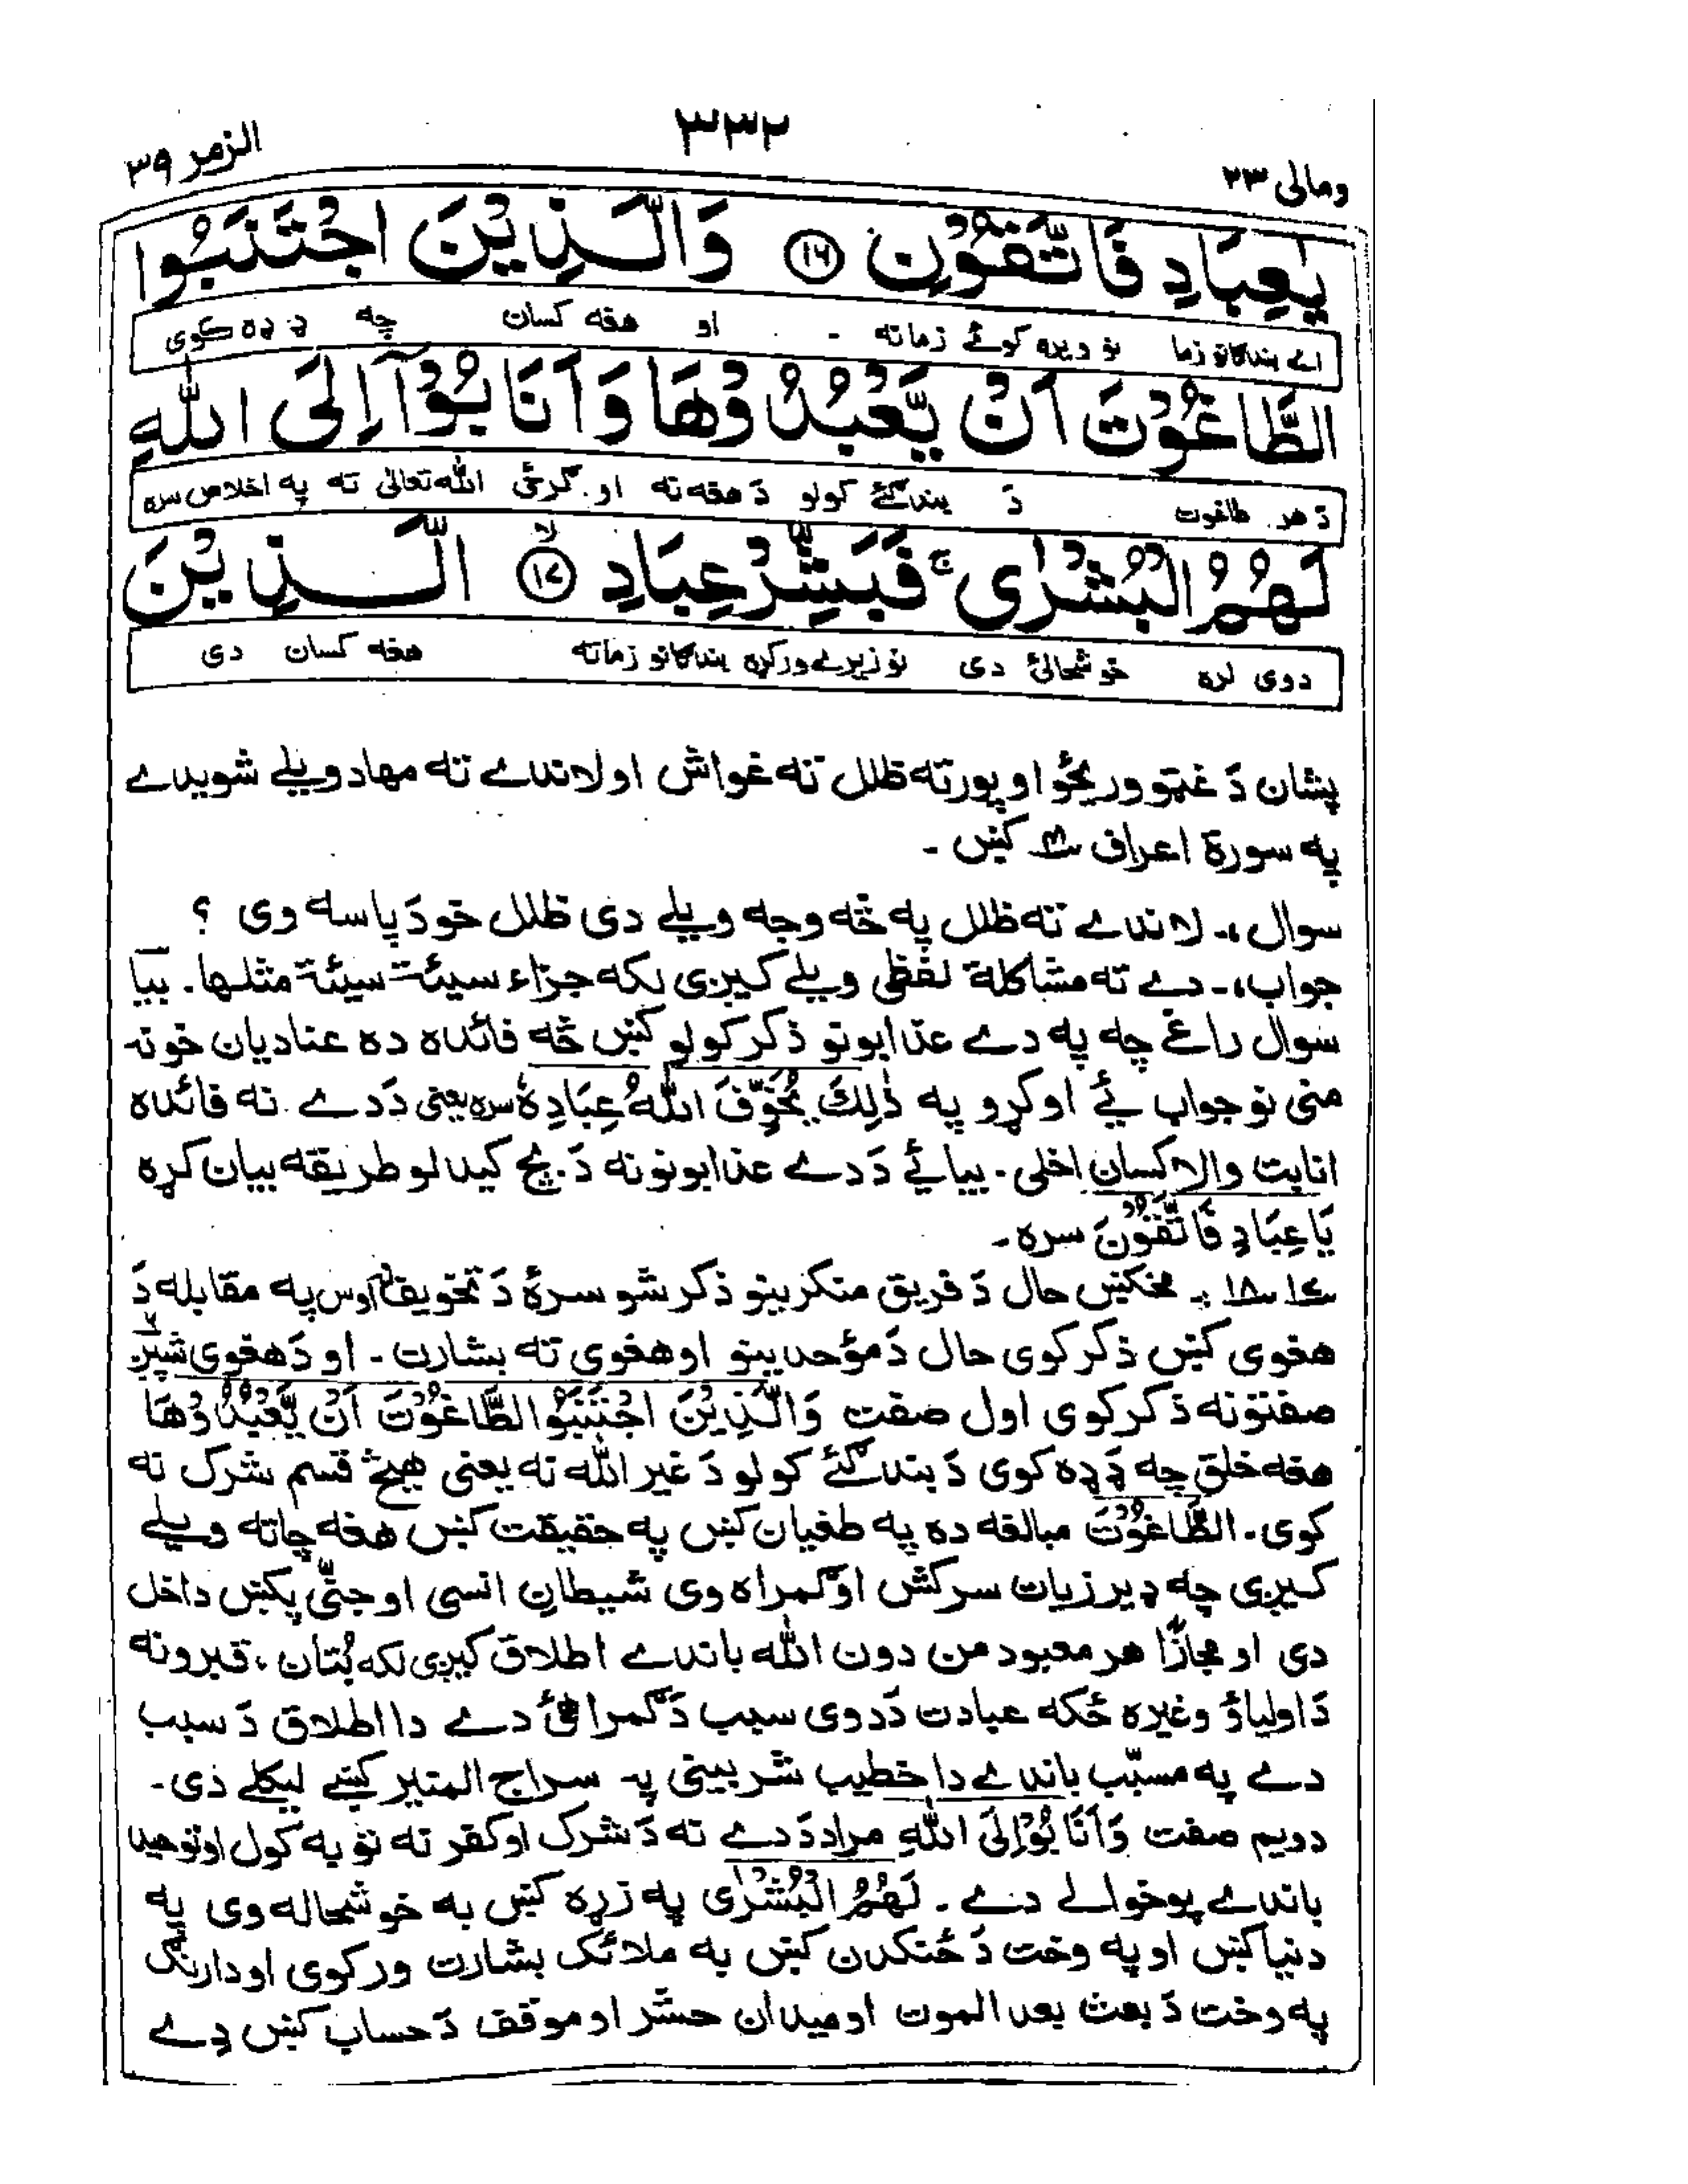 ومالی ۲۳
۳۳۲
الزمر ۳۹
يٰعِبَادِ فَاتَّقُوْنِ ⑯ وَالَّذِيْنَ اجْتَنَبُوا
اے بندګانو زما نو ویره کوئے زما نه - او هغه کسان چه ډډه کوی
الطَّاغُوْتَ اَنْ يَّعْبُدُوْهَا وَاَنَابُوْٓا اِلَى اللّٰهِ
دَ هر طاغوت دَ بندګئے کولو دَ هغه نه او ګرځی الله تعالیٰ ته په اخلاص سره
لَهُمُ الْبُشْرٰى ۚ فَبَشِّرْ عِبَادِ ⑰ۙ الَّذِيْنَ
دوی لره خوشحالئ دی نو زیرے ورکړه بندګانو زما ته هغه کسان دی
پشان دَ غټو وریځو او پورته ظلل ته غواش او لاندے ته مهاد ویلے شویدے
په سورة اعراف کښ -
سوال:- لاندے ته ظلل په څه وجه ویلے دی ظلل خو دَ پاسه وی ؟
جواب:- دے ته مشاکلة لفظی ویلے کیږی لکه جزاء سیئة سیئة مثلها. بیا
سوال راغے چه په دے عذابونو ذکر کولو کښ څه فائده ده عنادیان خو نه
منی نو جواب ئے اوکړو په ذٰلِكَ يُخَوِّفُ اللّٰهُ عِبَادِهٗ سره یعنی دَ دے نه فائده
انابت والا کسان اخلی. بیا ئے دَ دے عذابونو نه دَ بچ کیدلو طریقه بیان کړه
يَا عِبَادِ فَاتَّقُوْنَ سره -
۱۷، ۱۸:- مخکښ حال دَ فریق منکرینو ذکر شو سرهٔ دَ تخویف اوس په مقابله دَ
هغوی کښ ذکر کوی حال دَ مؤحدینو او هغوی ته بشارت - او دَ هغوی شپږ
صفتونه ذکر کوی اول صفت وَالَّذِيْنَ اجْتَنَبُوا الطَّاغُوْتَ اَنْ يَّعْبُدُوْهَا
هغه خلق چه ډډه کوی دَ بندګئے کولو دَ غیر الله نه یعنی هیڅ قسم شرک نه
کوی. الطَّاغُوْتَ مبالغه ده په طغیان کښ په حقیقت کښ هغه چاته ویلے
کیږی چه ډیر زیات سرکش او ګمراه وی شیطانِ انسی او جنّی پکښ داخل
دی او مجازًا هر معبود من دون الله باندے اطلاق کیږی لکه بُتان، قبرونه
دَ اولیاؤ وغیره ځکه عبادت دَ دوی سبب دَ ګمراهئ دے دا اطلاق دَ سبب
دے په مسبّب باندے دا خطیب شربینی په سراج المنیر کښے لیکلے دی -
دویم صفت وَاَنَابُوْا اِلَى اللّٰهِ مراد دَ دے نه دَ شرک او کفر نه توبه کول او توحید
باندے پوخوالے دے - لَهُمُ الْبُشْرٰى په زړه کښ به خوشحاله وی په
دنیا کښ او په وخت دَ ځنکدن کښ به ملائک بشارت ورکوی او دارنګ
په وخت دَ بعث بعد الموت او میدان حشر او موقف دَ حساب کښ دِے